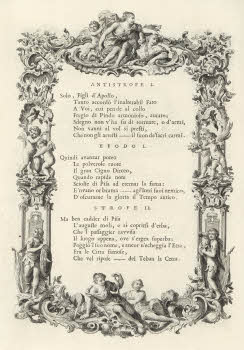 ANTISTROFE I.
Solo, Figli d'Apollo,
Tanto accordò l'inalterabil Fato
A Voi, cui pende al collo
Fregio di Pindo armonioso, aurato;
Sdegno non v'ha fu di tornare, o d'armi,
Non vanni al vol sì presti,
Che non gli arresti il suon de' sacri carmi.
EPODO I.
Quindi avanzar potea
Le polverose ruote
Il gran Cigno Dirceo,
Quando rapide note
Sciolse di Pisa ad eternar la fama:
E l'errano agl'Inni suoi nemico,
D'oscurarne la gloria il Tempo antico.
STROFE II.
Ma ben cadder di Pisa
L'auguste moli, e si coprirsi d'erba,
Che l' passaggier ravvisa
Il luogo appena, ove s'ergea superba:
Poggia l'Inno nome, e ancor n'echeggia l'Etra,
Fra le Città famose,
Che vel ripose del Teban la Cetra.